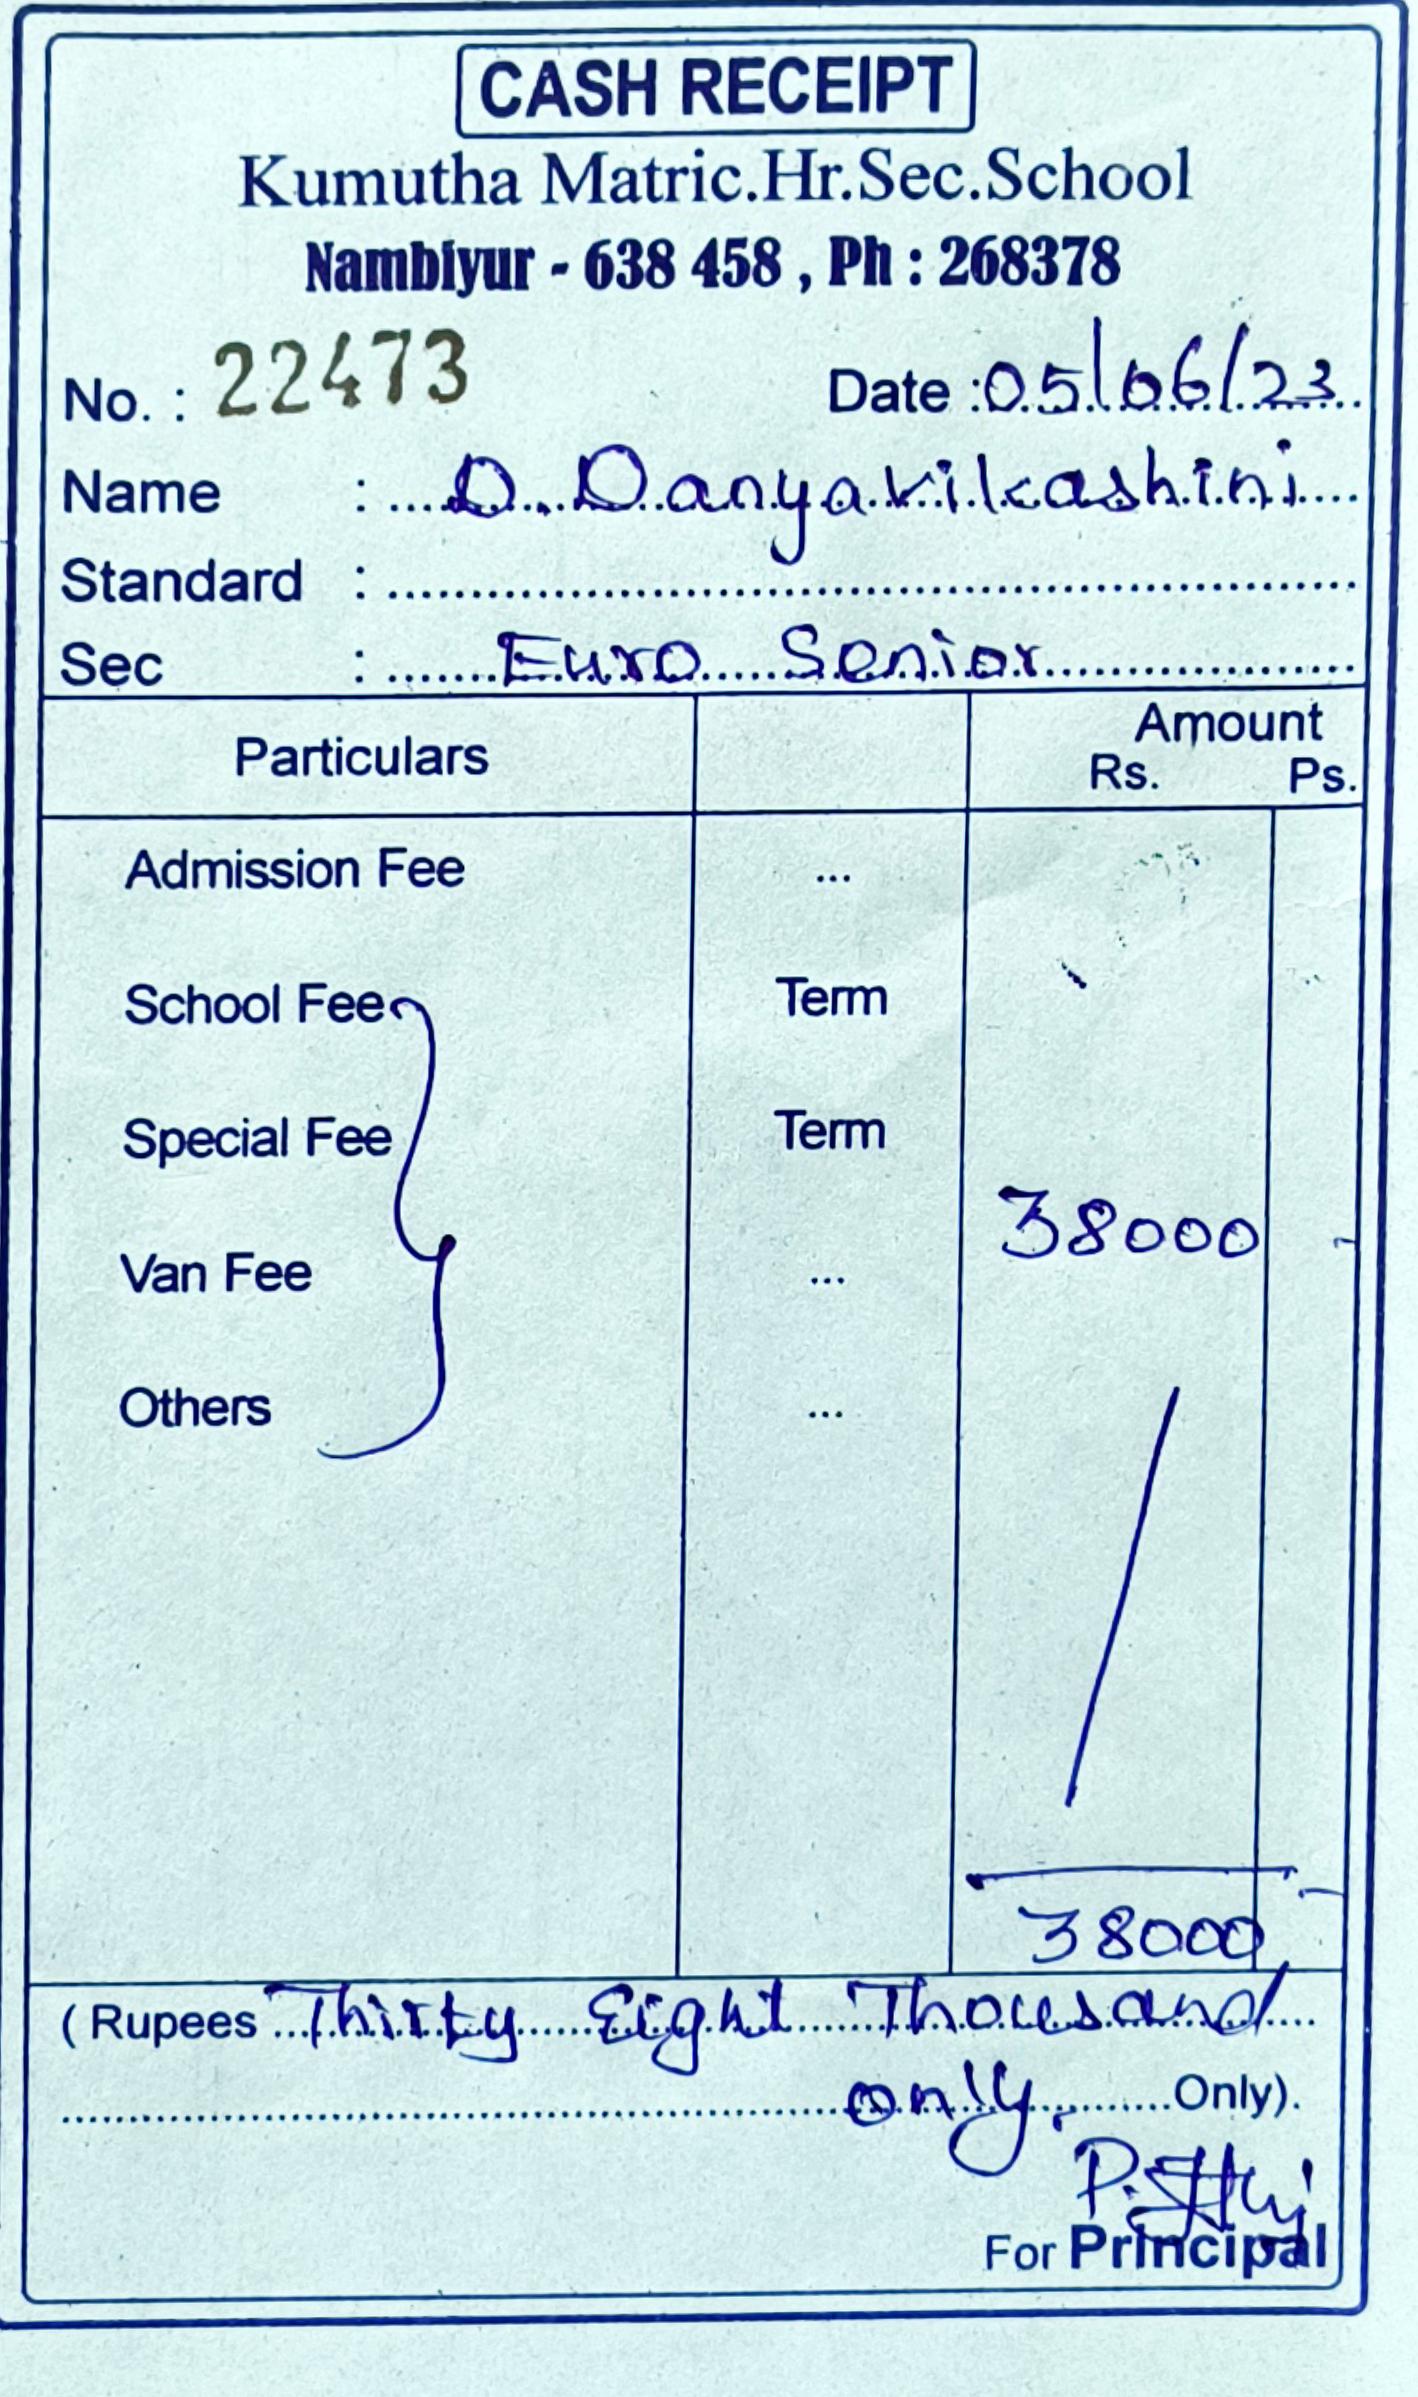 CASH RECEIPT
Kumutha Matric.Hr.Sec.School
Nambiyur - 638 458 , Ph : 268378
No. : 22473 Date : 05/06/23
Name : D. Danyavikashini
Standard :
Sec : Euro Senior
Particulars Amount
Rs. Ps.
Admission Fee ...
School Fee Term
Special Fee Term
38000
Van Fee ...
Others ...
38000
( Rupees Thirty Eight Thousand
only. Only).
For Principal